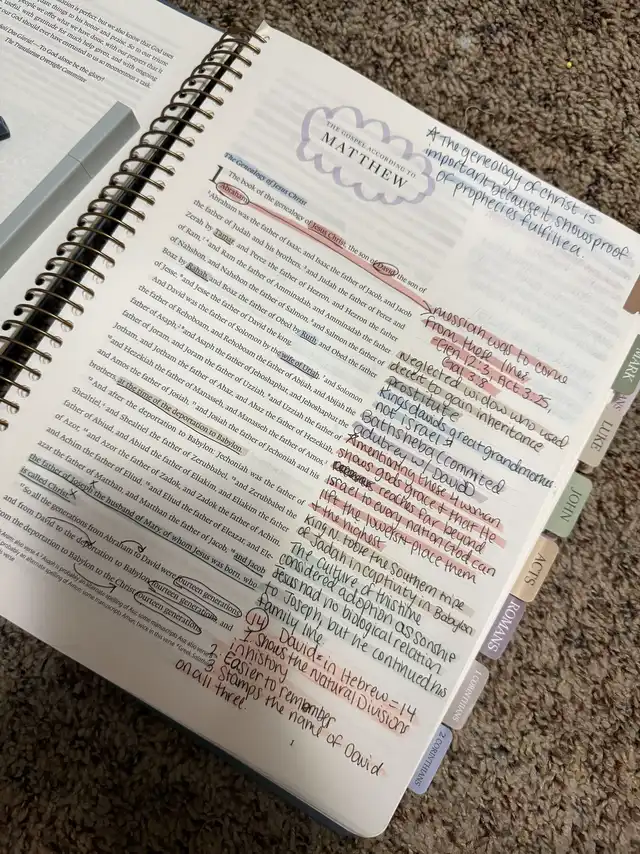 is perfect, but we also know that God uses
things to his honor and praise. So to our triune
people we offer what we have done, with our prayers that it
useful, with gratitude for much help given, and with ongoing
our God should ever have entrusted to us so momentous a task.
Deo Gloria!—To God alone be the glory!
The Translation Oversight Committee
THE GOSPEL ACCORDING TO
MATTHEW
* The geneology of christ is
important because it shows proof
of prophecies fulfilled.
The Genealogy of Jesus Christ
1 The book of the genealogy of Jesus Christ, the son of David, the son of
Abraham.
2 Abraham was the father of Isaac, and Isaac the father of Jacob, and Jacob
the father of Judah and his brothers, 3 and Judah the father of Perez and
Zerah by Tamar, and Perez the father of Hezron, and Hezron the father
of Ram, 4 and Ram the father of Amminadab, and Amminadab the father
of Nahshon, and Nahshon the father of Salmon, 5 and Salmon the father of
Boaz by Rahab, and Boaz the father of Obed by Ruth, and Obed the father
of Jesse, 6 and Jesse the father of David the king.
And David was the father of Solomon by the wife of Uriah, 7 and Solomon
the father of Rehoboam, and Rehoboam the father of Abijah, and Abijah the
father of Asaph, 8 and Asaph the father of Jehoshaphat, and Jehoshaphat the
father of Joram, and Joram the father of Uzziah, 9 and Uzziah the father of
Jotham, and Jotham the father of Ahaz, and Ahaz the father of Hezekiah,
10 and Hezekiah the father of Manasseh, and Manasseh the father of Amos,
and Amos the father of Josiah, 11 and Josiah the father of Jechoniah and his
brothers, at the time of the deportation to Babylon.
12 And after the deportation to Babylon: Jechoniah was the father of
Shealtiel, and Shealtiel the father of Zerubbabel, 13 and Zerubbabel the
father of Abiud, and Abiud the father of Eliakim, and Eliakim the father
of Azor, 14 and Azor the father of Zadok, and Zadok the father of Achim,
and Achim the father of Eliud, 15 and Eliud the father of Eleazar, and Ele-
azar the father of Matthan, and Matthan the father of Jacob, 16 and Jacob
the father of Joseph the husband of Mary, of whom Jesus was born, who
is called Christ.
17 So all the generations from Abraham to David were fourteen generations,
and from David to the deportation to Babylon fourteen generations, and
from the deportation to Babylon to the Christ fourteen generations.
messiah was to come
from these lines
Gen 12:3, Act 3:25,
Gal 3:8
neglected widow who used
deceit to gain inheritance
Prostitute
King davids great grandmother
not Israel
Bathsheba (committed
adultery w/ David)
* mentioning these 4 women
shows gods grace & that He
reaches far beyond
Israel to every nation. God can
lift the lowest & place them
the highest
King N. took the Southern tribe
of Judah in captivity in Babylon
The culture of this time
considered adoption as sonship
Jesus had no biological relation
to Joseph, but he continued his
family line
(14) David in Hebrew = 14
1 shows the natural Divisions
in history
2 Easier to remember
3 Stamps the name of David
on all three
1
MARK
LUKE
JOHN
ACTS
ROMANS
1 CORINTHIANS
2 CORINTHIANS